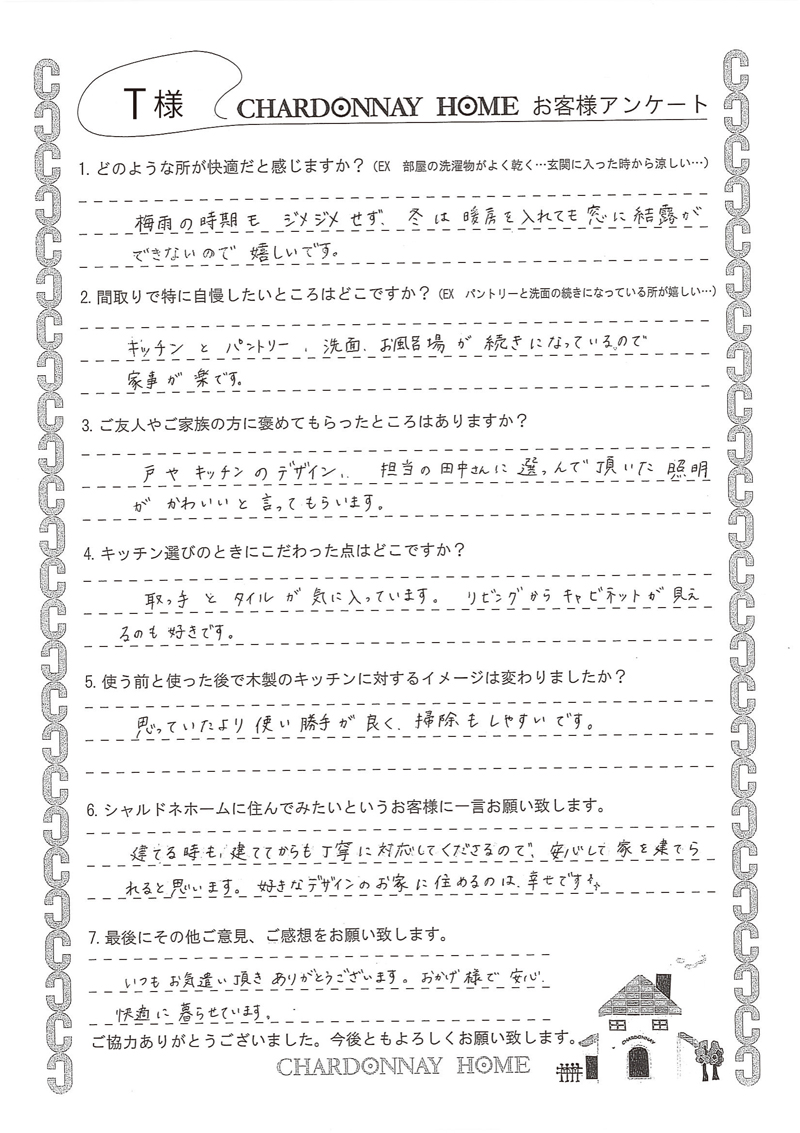 T様
CHARDONNAY HOME お客様アンケート
1. どのような所が快適だと感じますか？（EX 部屋の洗濯物がよく乾く…玄関に入った時から涼しい…）
梅雨の時期も ジメジメせず、冬は暖房を入れても窓に結露が
できないので 嬉しいです。
2. 間取りで特に自慢したいところはどこですか？（EX パントリーと洗面の続きになっている所が嬉しい…）
キッチンと パントリー、洗面、お風呂場が 続きになっているので
家事が楽です。
3. ご友人やご家族の方に褒めてもらったところはありますか？
戸や キッチンのデザイン、担当の田中さんに選んで頂いた照明
が かわいいと言ってもらいます。
4. キッチン選びのときにこだわった点はどこですか？
取っ手と タイルが気に入っています。リビングからキャビネットが見え
るのも好きです。
5. 使う前と使った後で木製のキッチンに対するイメージは変わりましたか？
思っていたより使い勝手が良く、掃除もしやすいです。
6. シャルドネホームに住んでみたいというお客様に一言お願い致します。
建てる時も、建ててからも丁寧に対応してくださるので、安心して家を建てら
れると思います。好きなデザインのお家に住めるのは、幸せです
7. 最後にその他ご意見、ご感想をお願い致します。
いつもお気遣い頂きありがとうございます。おかげ様で安心、
快適に暮らせています。
ご協力ありがとうございました。今後ともよろしくお願い致します。
CHARDONNAY HOME
CHARDONNAY